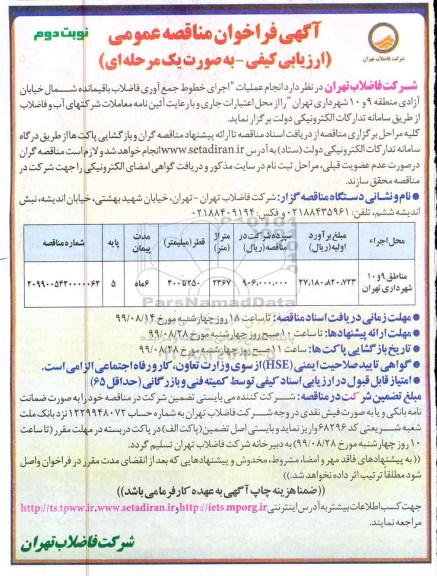 آگهی فراخوان مناقصه عمومی
نوبت دوم
(ارزیابی کیفی - به صورت یک مرحله ای)
شرکت فاضلاب تهران
شرکت فاضلاب تهران در نظر دارد انجام عملیات "اجرای خطوط جمع آوری فاضلاب باقیمانده شمال خیابان
آزادی منطقه ۹ و ۱۰ شهرداری تهران" را از محل اعتبارات جاری و با رعایت آئین نامه معاملات شرکتهای آب و فاضلاب
از طریق سامانه تدارکات الکترونیکی دولت برگزار نماید.
کلیه مراحل برگزاری مناقصه از دریافت اسناد مناقصه تا ارائه پیشنهاد مناقصه گران و بازگشایی پاکت ها از طریق درگاه
سامانه تدارکات الکترونیکی دولت (ستاد) به آدرس www.setadiran.ir انجام خواهد شد و لازم است مناقصه گران
در صورت عدم عضویت قبلی، مراحل ثبت نام در سایت مذکور و دریافت گواهی امضای الکترونیکی را جهت شرکت در
مناقصه محقق سازند.
• نام و نشانی دستگاه مناقصه گزار: شرکت فاضلاب تهران - تهران، خیابان شهید بهشتی، خیابان اندیشه، نبش
اندیشه ششم، تلفن: ۰۲۱۸۸۴۳۵۹۶۱ و فکس: ۰۲۱۸۸۴۰۹۱۹۴
محل اجراء | مبلغ برآورد اولیه (ریال) | سپرده شرکت در مناقصه (ریال) | متراژ (متر) | قطر (میلیمتر) | مدت پیمان | پایه | شماره مناقصه
مناطق ۹ و ۱۰ شهرداری تهران | ۲۷،۱۸۰،۸۲۰،۷۲۳ | ۹۰۶،۰۰۰،۰۰۰ | ۲۳۶۷ | ۲۵۰ تا ۳۰۰ | ۶ ماه | ۵ | ۲۰۹۹۰۰۵۴۲۰۰۰۰۰۶۲
• مهلت زمانی دریافت اسناد مناقصه: تا ساعت ۱۸ روز چهارشنبه مورخ ۹۹/۰۸/۱۴
• مهلت ارائه پیشنهادها: تا ساعت ۱۰ صبح روز چهارشنبه مورخ ۹۹/۰۸/۲۸
• تاریخ بازگشایی پاکت ها: ساعت ۱۱ صبح روز چهارشنبه مورخ ۹۹/۰۸/۲۸
• گواهی تایید صلاحیت ایمنی (HSE) از سوی وزارت تعاون، کار و رفاه اجتماعی الزامی است.
• امتیاز قابل قبول در ارزیابی اسناد کیفی توسط کمیته فنی و بازرگانی (حداقل ۶۵)
مبلغ تضمین شرکت در مناقصه: شرکت کننده می بایستی تضمین شرکت در مناقصه خود را به صورت ضمانت
نامه بانکی و یا به صورت فیش نقدی در وجه شرکت فاضلاب تهران به شماره حساب ۱۲۲۹۹۴۸۰۷۲ نزد بانک ملت
شعبه شریعتی کد ۶۸۲۹۶ واریز نماید و بایستی اصل تضمین (پاکت الف) در پاکت دربسته در مهلت مقرر (تا ساعت
۱۰ روز چهارشنبه مورخ ۹۹/۰۸/۲۸) به دبیرخانه شرکت فاضلاب تهران تسلیم گردد.
(( به پیشنهادهای فاقد مهر و امضا، مشروط، مخدوش و پیشنهادهایی که بعد از انقضای مدت مقرر در فراخوان واصل
شود مطلقا ترتیب اثر داده نخواهد شد.))
((ضمنا هزینه چاپ آگهی به عهده کارفرما می باشد))
جهت کسب اطلاعات بیشتر به آدرس اینترنتی http://iets.mporg.ir و http://ts.tpww.ir, www.setadiran.ir
مراجعه نمایند.
شرکت فاضلاب تهران
ParsNamadData